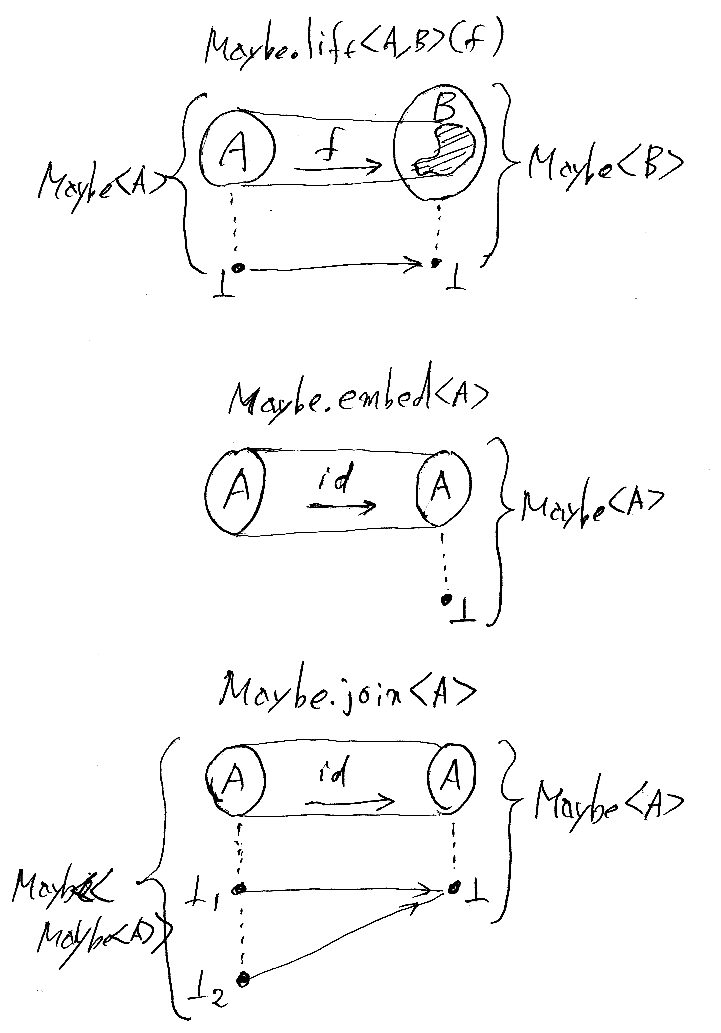 Maybe.lift<A,B>(f)
Maybe<A>
A
f
B
Maybe<B>
⊥
⊥
Maybe.embed<A>
A
id
A
Maybe<A>
⊥
Maybe.join<A>
A
id
A
Maybe<A>
Maybe<
Maybe<A>>
⊥1
⊥
⊥2